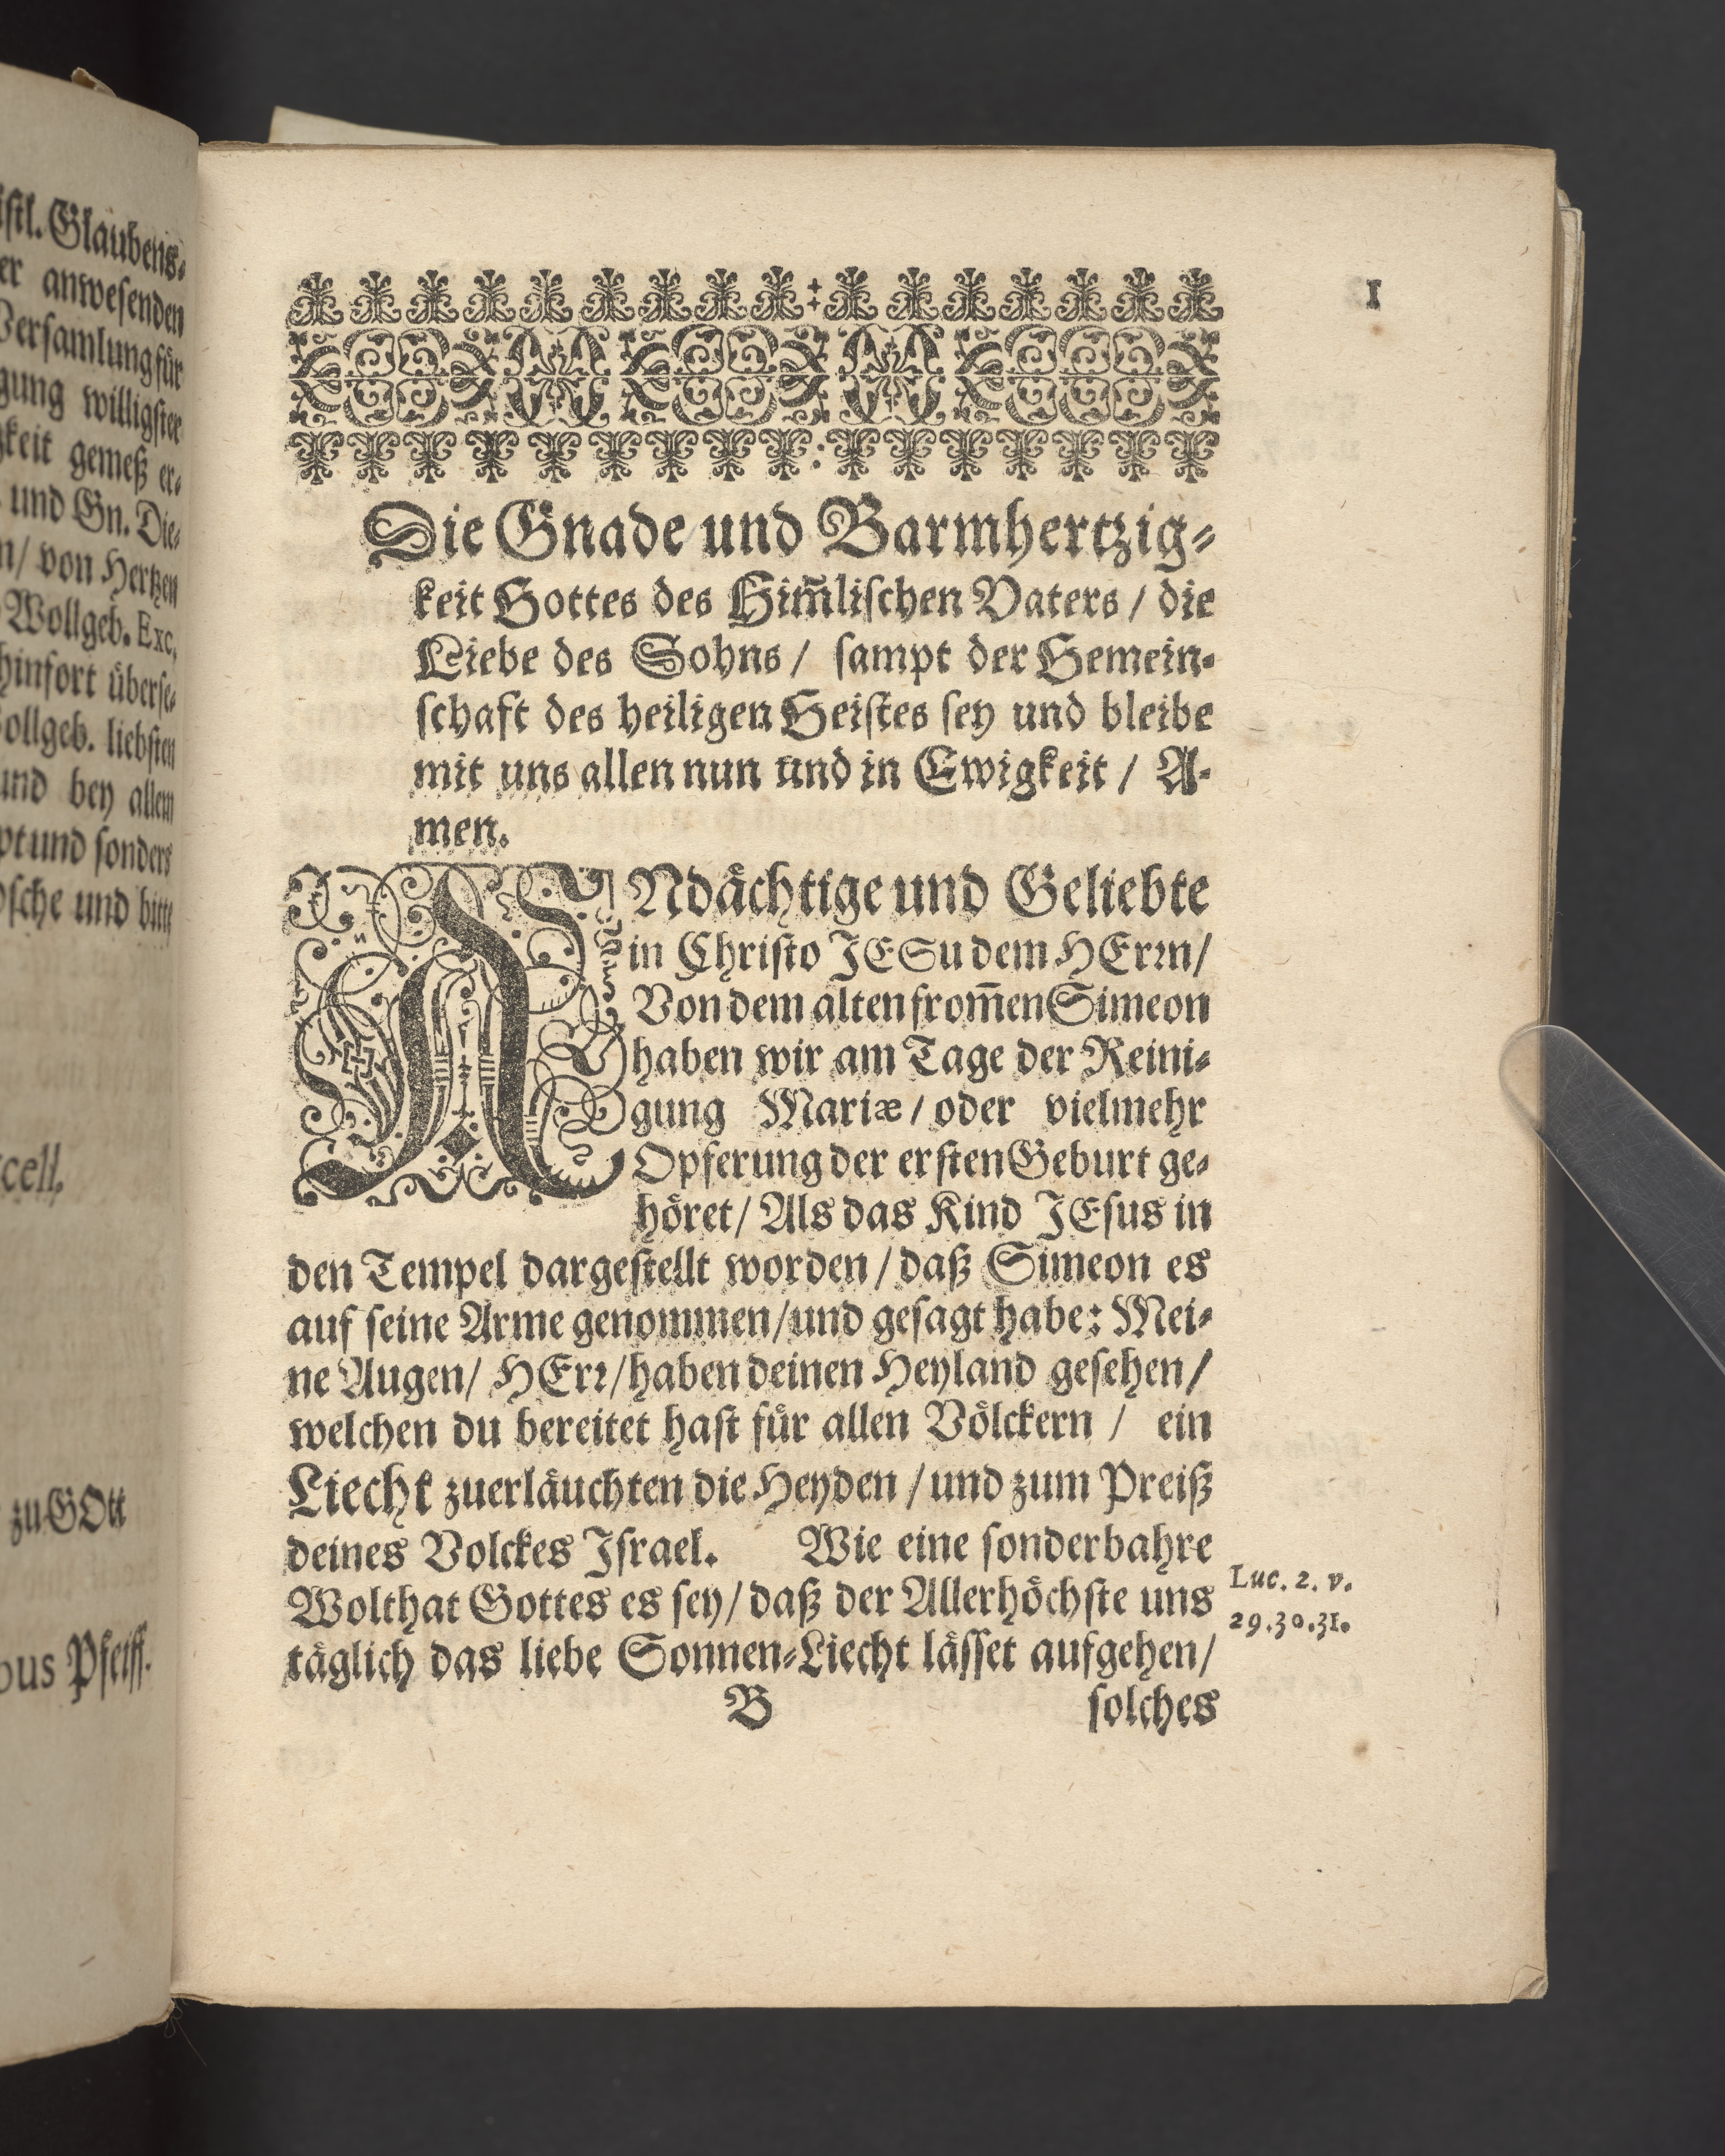 istl. Glaubens⸗
er anwesenden
Versamlung für
gung willigster
gkeit gemeß er⸗
und Gn. Die⸗
n/ von Hertzen
Wollgeb. Exc.
hinfort überse⸗
ollgeb. liebsten
und bey allem
pt und sonders
sche und bitte
cell.
zu GOtt
bus Pfeiff.
1
Die Gnade und Barmhertzig⸗
keit Gottes des Him̃lischen Vaters / die
Liebe des Sohns / sampt der Gemein⸗
schaft des heiligen Geistes sey und bleibe
mit uns allen nun und in Ewigkeit / A⸗
men.
ANdåchtige und Geliebte
in Christo JESu dem HErꝛn/
Von dem alten from̃en Simeon
haben wir am Tage der Reini⸗
gung Mariæ / oder vielmehr
Opferung der ersten Geburt ge⸗
hoͤret/ Als das Kind JEsus in
den Tempel dargestellt worden / daß Simeon es
auf seine Arme genommen/und gesagt habe: Mei⸗
ne Augen/ HErꝛ/haben deinen Heyland gesehen/
welchen du bereitet hast fuͤr allen Voͤlckern / ein
Liecht zuerlaͤuchten die Heyden / und zum Preiß
deines Volckes Israel. Wie eine sonderbahre
Wolthat Gottes es sey/ daß der Allerhoͤchste uns
taͤglich das liebe Sonnen⸗Liecht laͤsset aufgehen/
Luc. 2. v.
29.30.31.
B
solches